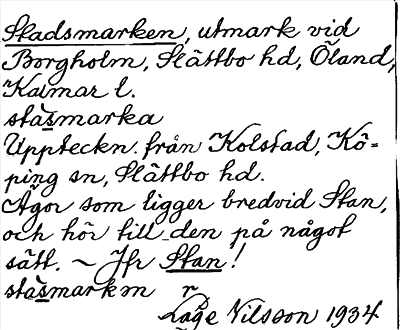 Stadsmarken, utmark vid
Borgholm, Slättbo hd, Öland,
Kalmar l.
stasmarka
Uppteckn. från Kolstad, Kö-
ping sn, Slättbo hd.
Ägor som ligger bredvid Stan,
och hör till den på något
sätt. ~ Jfr Stan!
stasmarkɷn
Lage Nilsson 1934